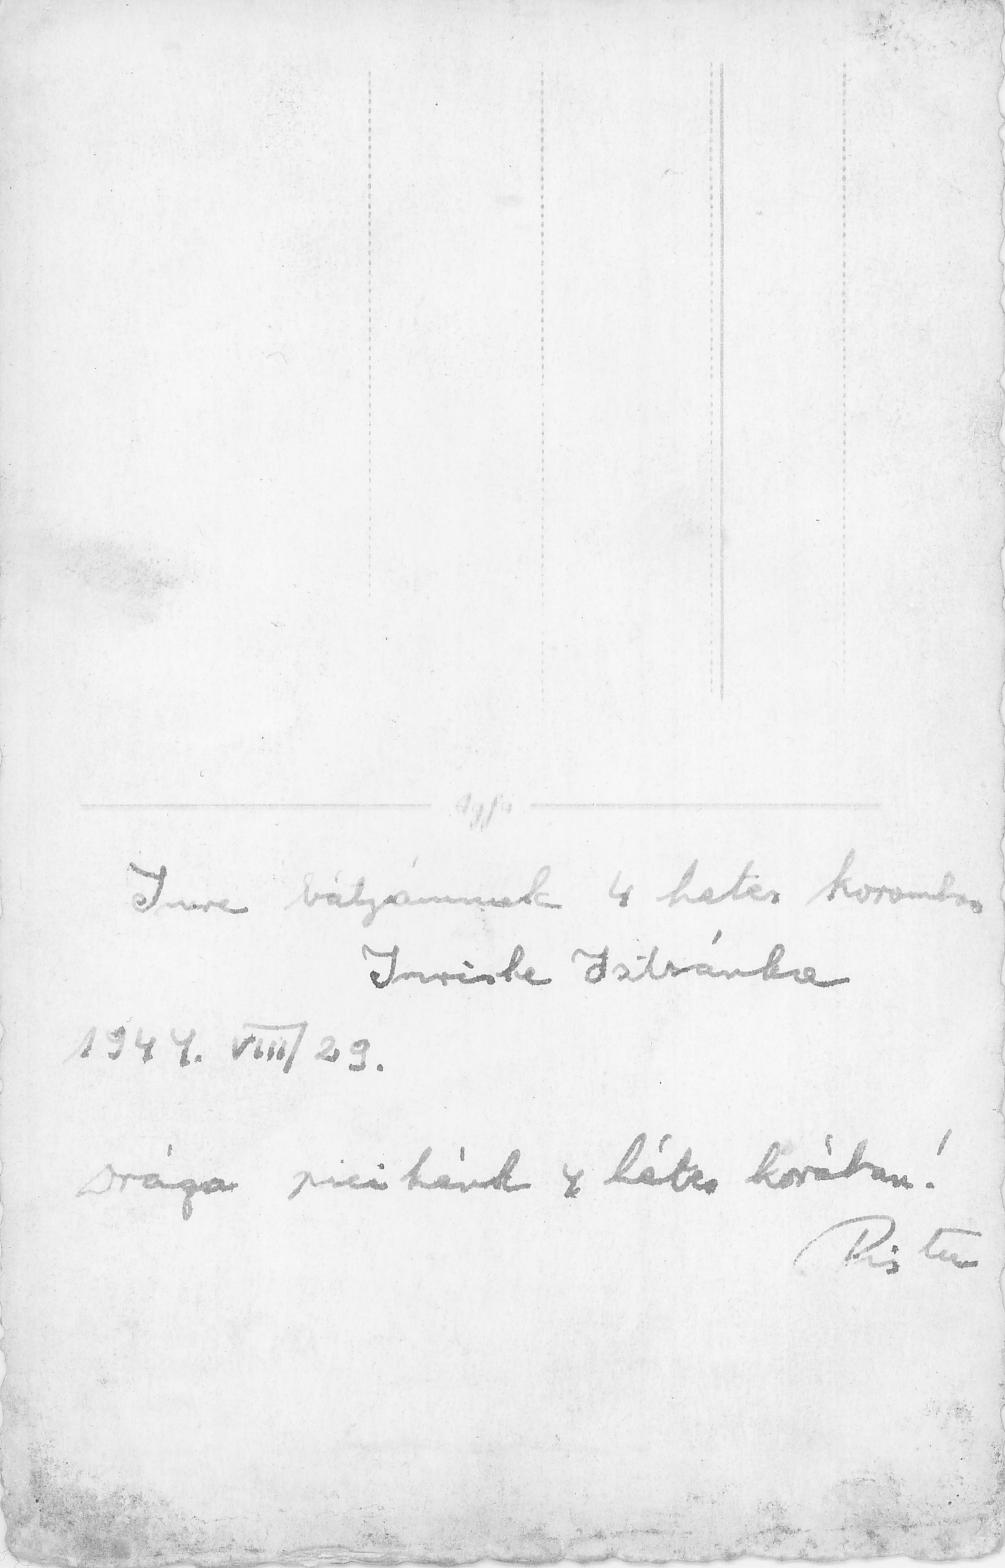 Agfa
Imre bátyámnak 4 hetes koromban
Imriske Istvánka
1944. VIII/29.
Drága picikénk 4 hétes korában!